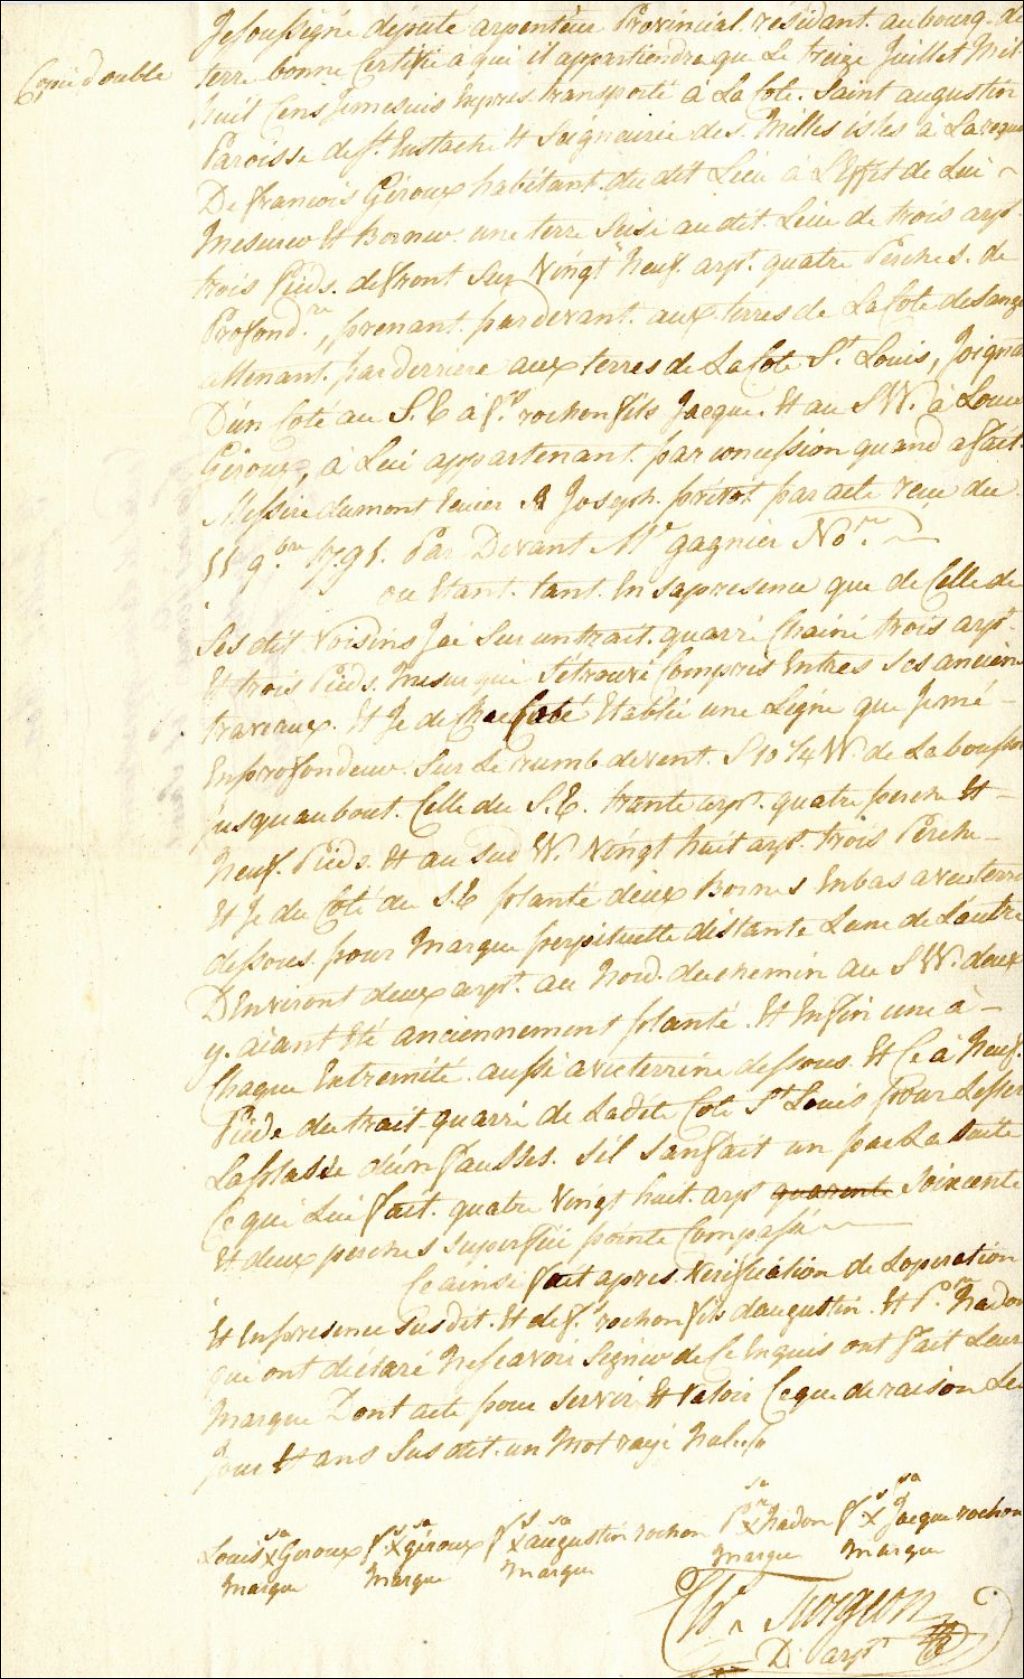 Copie double
Je soussigné député arpenteur Provincial résidant au bourg de
terre bonne Certifie à qui il appartiendra que Le treize Juillet Mil
huit Cens Jemesuis Expres transporté à La Cote Saint augustin
Paroisse de St. Eustache Et Seigneurie des Milles isles à La reque
De francois Giroux habitant du dit Lieu à L'Effet de Lui
Mesurer Et Borner une terre Sise au dit Lieu de trois arpt.
trois Pieds de front Sur Vingt Neuf arpt. quatre Perches de
Profondre. prenant par devant aux terres de La Cote des anges
attenant par derriere aux terres de La Cote St. Louis, Joignan
D'un Coté au S. E à f. rochon fils Jacque. Et au SW. à Louis
Giroux, à Lui appartenant par concession quand a fait
Messire dumont Ecuier à Joseph prévot par acte reçu du
11 9bre 1791. Par Devant Mr gagnier Nore.
ou Etant tant En sa presence que de Celle de
Ses dit Voisins J'ai Sur un trait quarré Chainé trois arpt.
Et trois Pieds Mesure qui S'étrouve Compris Entres Ses anciens
traveaux. Et Je de Chac Coté Etablie une Ligne que J'emé
En profondeur Sur Le rumb devent S 10 1/4 W. de La boussole
jusquaubout. Celle du S. E. trante arpt. quatre perche Et
Neuf Pieds. Et au Sud W. Vingt huit arpt. trois Perche
Et Je du Coté du S. E planté deux Bornes En bas avec terrin
dessous pour Marque perpétuelle distante Lune de Lautre
D'Environt deux arpt. au Nord du chemin au SW. deux
y aiant Eté anciennement planté. Et Enfin une à
Chaque Extremité aussi avec terrine dessous Et Ce à Neuf
Pieds du trait quarré de Ladite Cote St Louis pour Lesser
La plasse d'un faussés. s'il s'anfait un par La Suite
Ce qui Lui fait quatre Vingt huit arpt quarente Soixcente
Et deux perches Superfici pointe Compassé
Ce ainsi fait apres Verification de Loperation
Et En presence Susdit. Et de f. rochon fils d'augustin. Et P.re Nadon
qui ont déclaré Ne scavoir Signer de Ce Enquis ont fait Leur
Marque Dont acte pour Servir Et Valoir Ceque de raison Les
Jour Et ans Sus dit. un Mot rayé Nul
Louis sa X Giroux Marque
f.s sa X giroux Marque
f.s sa X augustin rochon Marque
P.re sa X Nadon Marque
f.s sa X Jacque rochon Marque
Turgeon
D. arpt